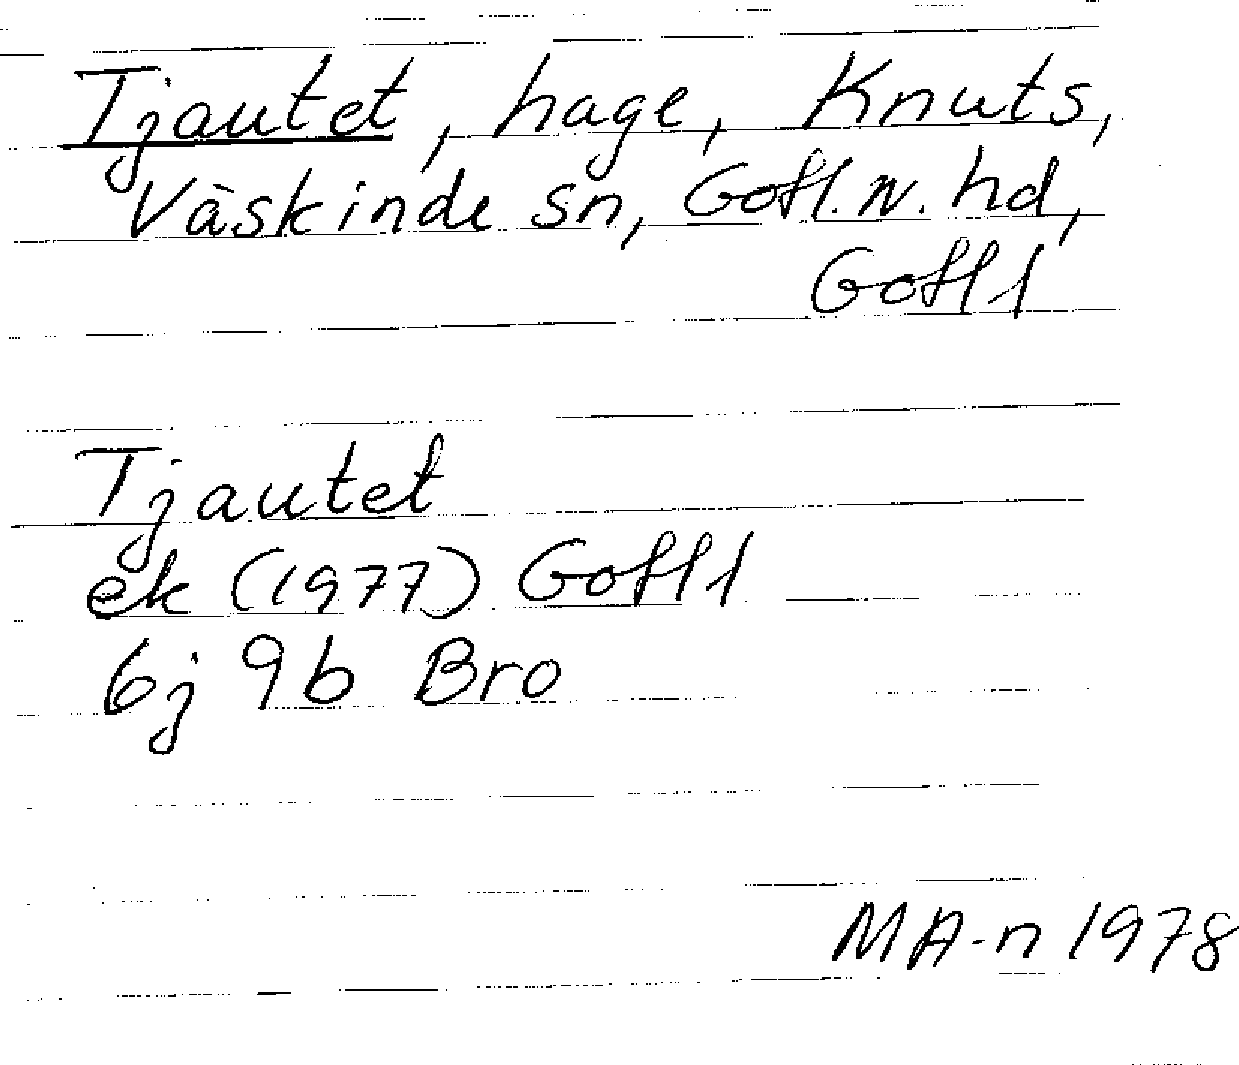 Tjautet, hage, Knuts,
Väskinde sn, Gotl. N. hd,
Gotl l
Tjautet
ek (1977) Gotl l
6j 9b Bro
MA-n 1978